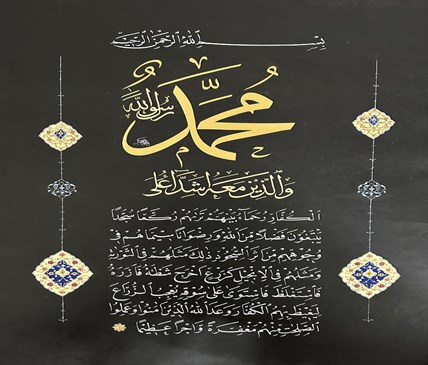 بِسْمِ اللَّهِ الرَّحْمَٰنِ الرَّحِيمِ
مُحَمَّدٌ رَسُولُ اللَّهِ
وَالَّذِينَ مَعَهُ أَشِدَّاءُ عَلَى
الْكُفَّارِ رُحَمَاءُ بَيْنَهُمْ تَرَاهُمْ رُكَّعًا سُجَّدًا
يَبْتَغُونَ فَضْلًا مِنَ اللَّهِ وَرِضْوَانًا سِيمَاهُمْ فِي
وُجُوهِهِمْ مِنْ أَثَرِ السُّجُودِ ذَٰلِكَ مَثَلُهُمْ فِي التَّوْرَاةِ
وَمَثَلُهُمْ فِي الْإِنْجِيلِ كَزَرْعٍ أَخْرَجَ شَطْأَهُ فَآزَرَهُ
فَاسْتَغْلَظَ فَاسْتَوَىٰ عَلَىٰ سُوقِهِ يُعْجِبُ الزُّرَّاعَ
لِيَغِيظَ بِهِمُ الْكُفَّارَ وَعَدَ اللَّهُ الَّذِينَ آمَنُوا وَعَمِلُوا
الصَّالِحَاتِ مِنْهُمْ مَغْفِرَةً وَأَجْرًا عَظِيمًا